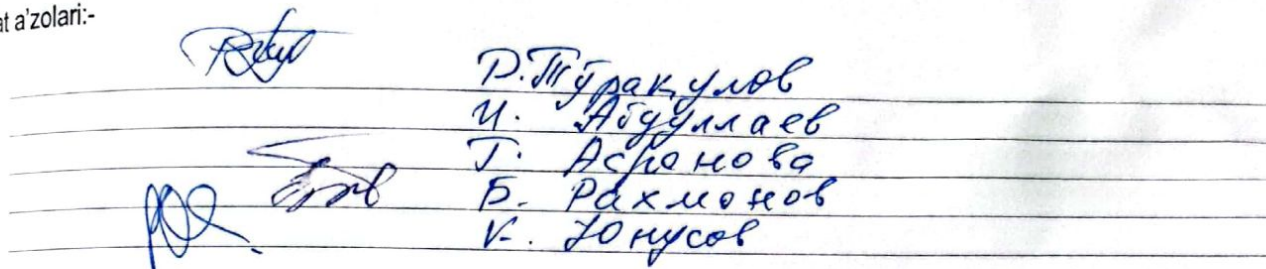 at a'zolari:-
Р. Тўрақулов
И. Абдуллаев
Г. Асранова
Б. Рахмонов
К. Юнусов